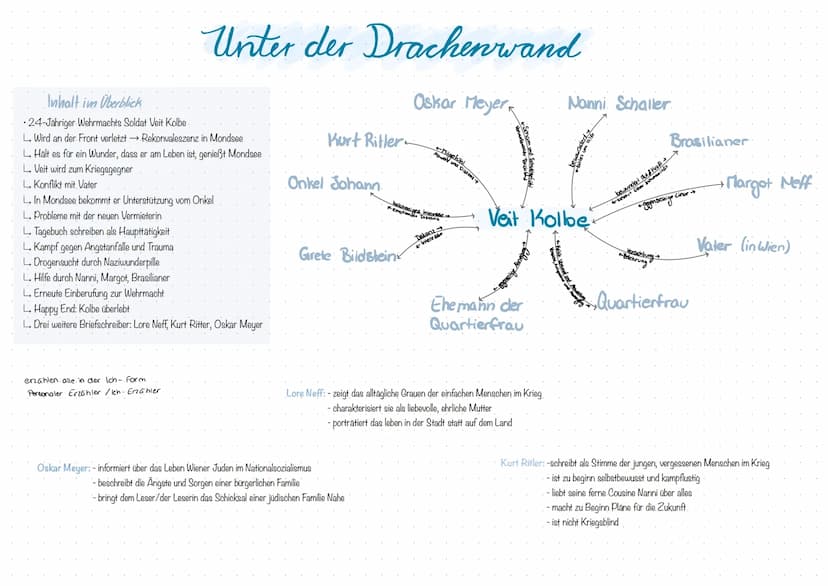 Unter der Drachenwand
Inhalt im Überblick
• 24-Jähriger Wehrmachts Soldat Veit Kolbe
↳ Wird an der Front verletzt → Rekonvaleszenz in Mondsee
↳ Hält es für ein Wunder, dass er am Leben ist, genießt Mondsee
↳ Veit wird zum Kriegsgegner
↳ Konflikt mit Vater
↳ In Mondsee bekommt er Unterstützung vom Onkel
↳ Probleme mit der neuen Vermieterin
↳ Tagebuch schreiben als Haupttätigkeit
↳ Kampf gegen Angstanfälle und Trauma
↳ Drogensucht durch Naziwunderpille
↳ Hilfe durch Nanni, Margot, Brasilianer
↳ Erneute Einberufung zur Wehrmacht
↳ Happy End: Kolbe überlebt
↳ Drei weitere Briefschreiber: Lore Neff, Kurt Ritter, Oskar Meyer
Oskar Meyer
Nanni Schaller
Kurt Ritler
Brasilianer
Onkel Johann
Margot Neff
Veit Kolbe
Grete Bildstein
Vater (in Wien)
Ehemann der
Quartierfrau
Quartierfrau
erzählen alle in der Ich-Form
Personaler Erzähler / Ich-Erzähler
Lore Neff: - zeigt das alltägliche Grauen der einfachen Menschen im Krieg
- charakterisiert sie als liebevolle, ehrliche Mutter
- porträtiert das leben in der Stadt statt auf dem Land
Oskar Meyer: - informiert über das Leben Wiener Juden im Nationalsozialismus
- beschreibt die Ängste und Sorgen einer bürgerlichen Familie
- bringt dem Leser/der Leserin das Schicksal einer jüdischen Familie Nahe
Kurt Ritler: -schreibt als Stimme der jungen, vergessenen Menschen im Krieg
- ist zu beginn selbstbewusst und kampflustig
- liebt seine ferne Cousine Nanni über alles
- macht zu Beginn Pläne für die Zukunft
- ist nicht Kriegsblind